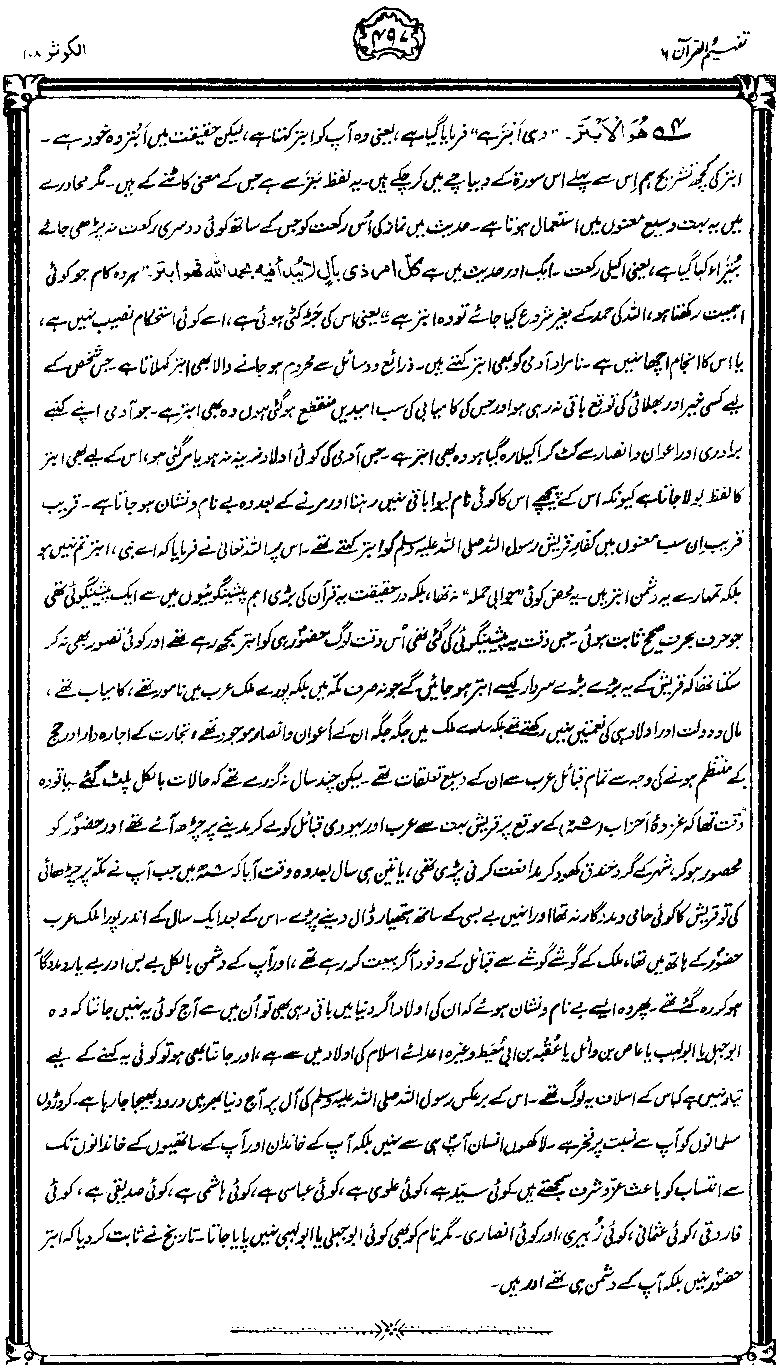 تفہیم القرآن ۶
۴۹۷
الکوثر ۱۰۸
۴ھ ھُوَ الْاَبْتَرُ۔ "وہی اَبْتَر ہے" فرمایا گیا ہے، یعنی وہ آپ کو ابتر کہتا ہے، لیکن حقیقت میں اَبْتر وہ خود ہے۔
ابتر کی کچھ تشریح ہم اِس سے پہلے اس سورۃ کے دیباچے میں کر چکے ہیں۔ یہ لفظ بَتَر سے ہے جس کے معنی کاٹنے کے ہیں۔ مگر محاورے
میں یہ بہت وسیع معنوں میں استعمال ہوتا ہے۔ حدیث میں نماز کی اُس رکعت کو جس کے ساتھ کوئی دوسری رکعت نہ پڑھی جائے
بُتَیْراء کہا گیا ہے، یعنی اکیلی رکعت۔ ایک اور حدیث میں ہے کل امرٍ ذی بالٍ لا یُبدأ فیہ بحمد اللہ فھو ابتر۔ "ہر وہ کام جو کوئی
اہمیت رکھتا ہو، اللہ کی حمد کے بغیر شروع کیا جائے تو وہ ابتر ہے" یعنی اس کی جَڑ کٹی ہوئی ہے، اسے کوئی استحکام نصیب نہیں ہے،
یا اس کا انجام اچھا نہیں ہے۔ نامراد آدمی کو بھی ابتر کہتے ہیں۔ ذرائع و وسائل سے محروم ہو جانے والا بھی ابتر کہلاتا ہے۔ جس شخص کے
لیے کسی خیر اور بھلائی کی توقع باقی نہ رہی ہو اور جس کی کامیابی کی سب امیدیں منقطع ہو گئی ہوں وہ بھی ابتر ہے۔ جو آدمی اپنے کنبے
برادری اور اعوان و انصار سے کٹ کر اکیلا رہ گیا ہو وہ بھی ابتر ہے۔ جس آدمی کی کوئی اولاد نرینہ نہ ہو یا مر گئی ہو، اس کے لیے بھی ابتر
کا لفظ بولا جاتا ہے کیونکہ اس کے پیچھے اس کا کوئی نام لیوا باقی نہیں رہتا اور مرنے کے بعد وہ بے نام و نشان ہو جاتا ہے۔ قریب
قریب اِن سب معنوں میں کفارِ قریش رسول اللہ صلی اللہ علیہ وسلم کو ابتر کہتے تھے۔ اس پر اللہ تعالیٰ نے فرمایا کہ اے نبی، ابتر تم نہیں ہو
بلکہ تمہارے یہ دشمن ابتر ہیں۔ یہ محض کوئی "جوابی حملہ" نہ تھا، بلکہ درحقیقت یہ قرآن کی بڑی اہم پیشینگوئیوں میں سے ایک پیشینگوئی تھی
جو حرف بحرف صحیح ثابت ہوئی۔ جس وقت یہ پیشینگوئی کی گئی تھی اُس وقت لوگ حضورؐ ہی کو ابتر سمجھ رہے تھے اور کوئی تصور بھی نہ کر
سکتا تھا کہ قریش کے یہ بڑے بڑے سردار کیسے ابتر ہو جائیں گے جو نہ صرف مکہ میں بلکہ پورے ملک عرب میں نامور تھے، کامیاب تھے،
مال و دولت اور اولاد ہی کی نعمتیں نہیں رکھتے تھے بلکہ سارے ملک میں جگہ جگہ ان کے اَعوان و انصار موجود تھے، تجارت کے اجارہ دار اور حج
کے منتظم ہونے کی وجہ سے تمام قبائل عرب سے ان کے وسیع تعلقات تھے۔ لیکن چند سال نہ گزرے تھے کہ حالات بالکل پلٹ گئے۔ یا تو وہ
وقت تھا کہ غزوۂ اَحزاب (۵ھ) کے موقع پر قریش بہت سے عرب اور یہودی قبائل کو لے کر مدینے پر چڑھ آئے تھے اور حضورؐ کو
محصور ہو کر، شہر کے گرد خندق کھود کر مدافعت کرنی پڑی تھی، یا تین ہی سال بعد وہ وقت آیا کہ ۸ھ میں جب آپ نے مکہ پر چڑھائی
کی تو قریش کا کوئی حامی و مددگار نہ تھا اور انہیں بے بسی کے ساتھ ہتھیار ڈال دینے پڑے۔ اس کے بعد ایک سال کے اندر پورا ملک عرب
حضورؐ کے ہاتھ میں تھا، ملک کے گوشے گوشے سے قبائل کے وفود آ کر بیعت کر رہے تھے، اور آپ کے دشمن بالکل بے بس اور بے یار و مددگار
ہو کر رہ گئے تھے۔ پھر وہ ایسے بے نام و نشان ہوئے کہ ان کی اولاد اگر دنیا میں باقی رہی بھی تو اُن میں سے آج کوئی یہ نہیں جانتا کہ وہ
ابوجہل یا ابولہب یا عاص بن وائل یا عُقبہ بن ابی مُعَیط وغیرہ اعدائے اسلام کی اولاد میں سے ہے، اور جانتا بھی ہو تو کوئی یہ کہنے کے لیے
تیار نہیں ہے کہ اس کے اسلاف یہ لوگ تھے۔ اس کے برعکس رسول اللہ صلی اللہ علیہ وسلم کی آل پر آج دنیا بھر میں درود بھیجا جا رہا ہے۔ کروڑوں
مسلمانوں کو آپ سے نسبت پر فخر ہے۔ لاکھوں انسان آپؐ ہی سے نہیں بلکہ آپ کے خاندان اور آپ کے ساتھیوں کے خاندانوں تک
سے انتساب کو باعث عزو شرف سمجھتے ہیں۔ کوئی سیّد ہے، کوئی علوی ہے، کوئی عباسی ہے، کوئی ہاشمی ہے، کوئی صدیقی ہے، کوئی
فاروقی، کوئی عثمانی، کوئی زُبیری، اور کوئی انصاری۔ مگر نام کو بھی کوئی ابوجہلی یا ابولہبی نہیں پایا جاتا۔ تاریخ نے ثابت کر دیا کہ ابتر
حضورؐ نہیں بلکہ آپ کے دشمن ہی تھے اور ہیں۔